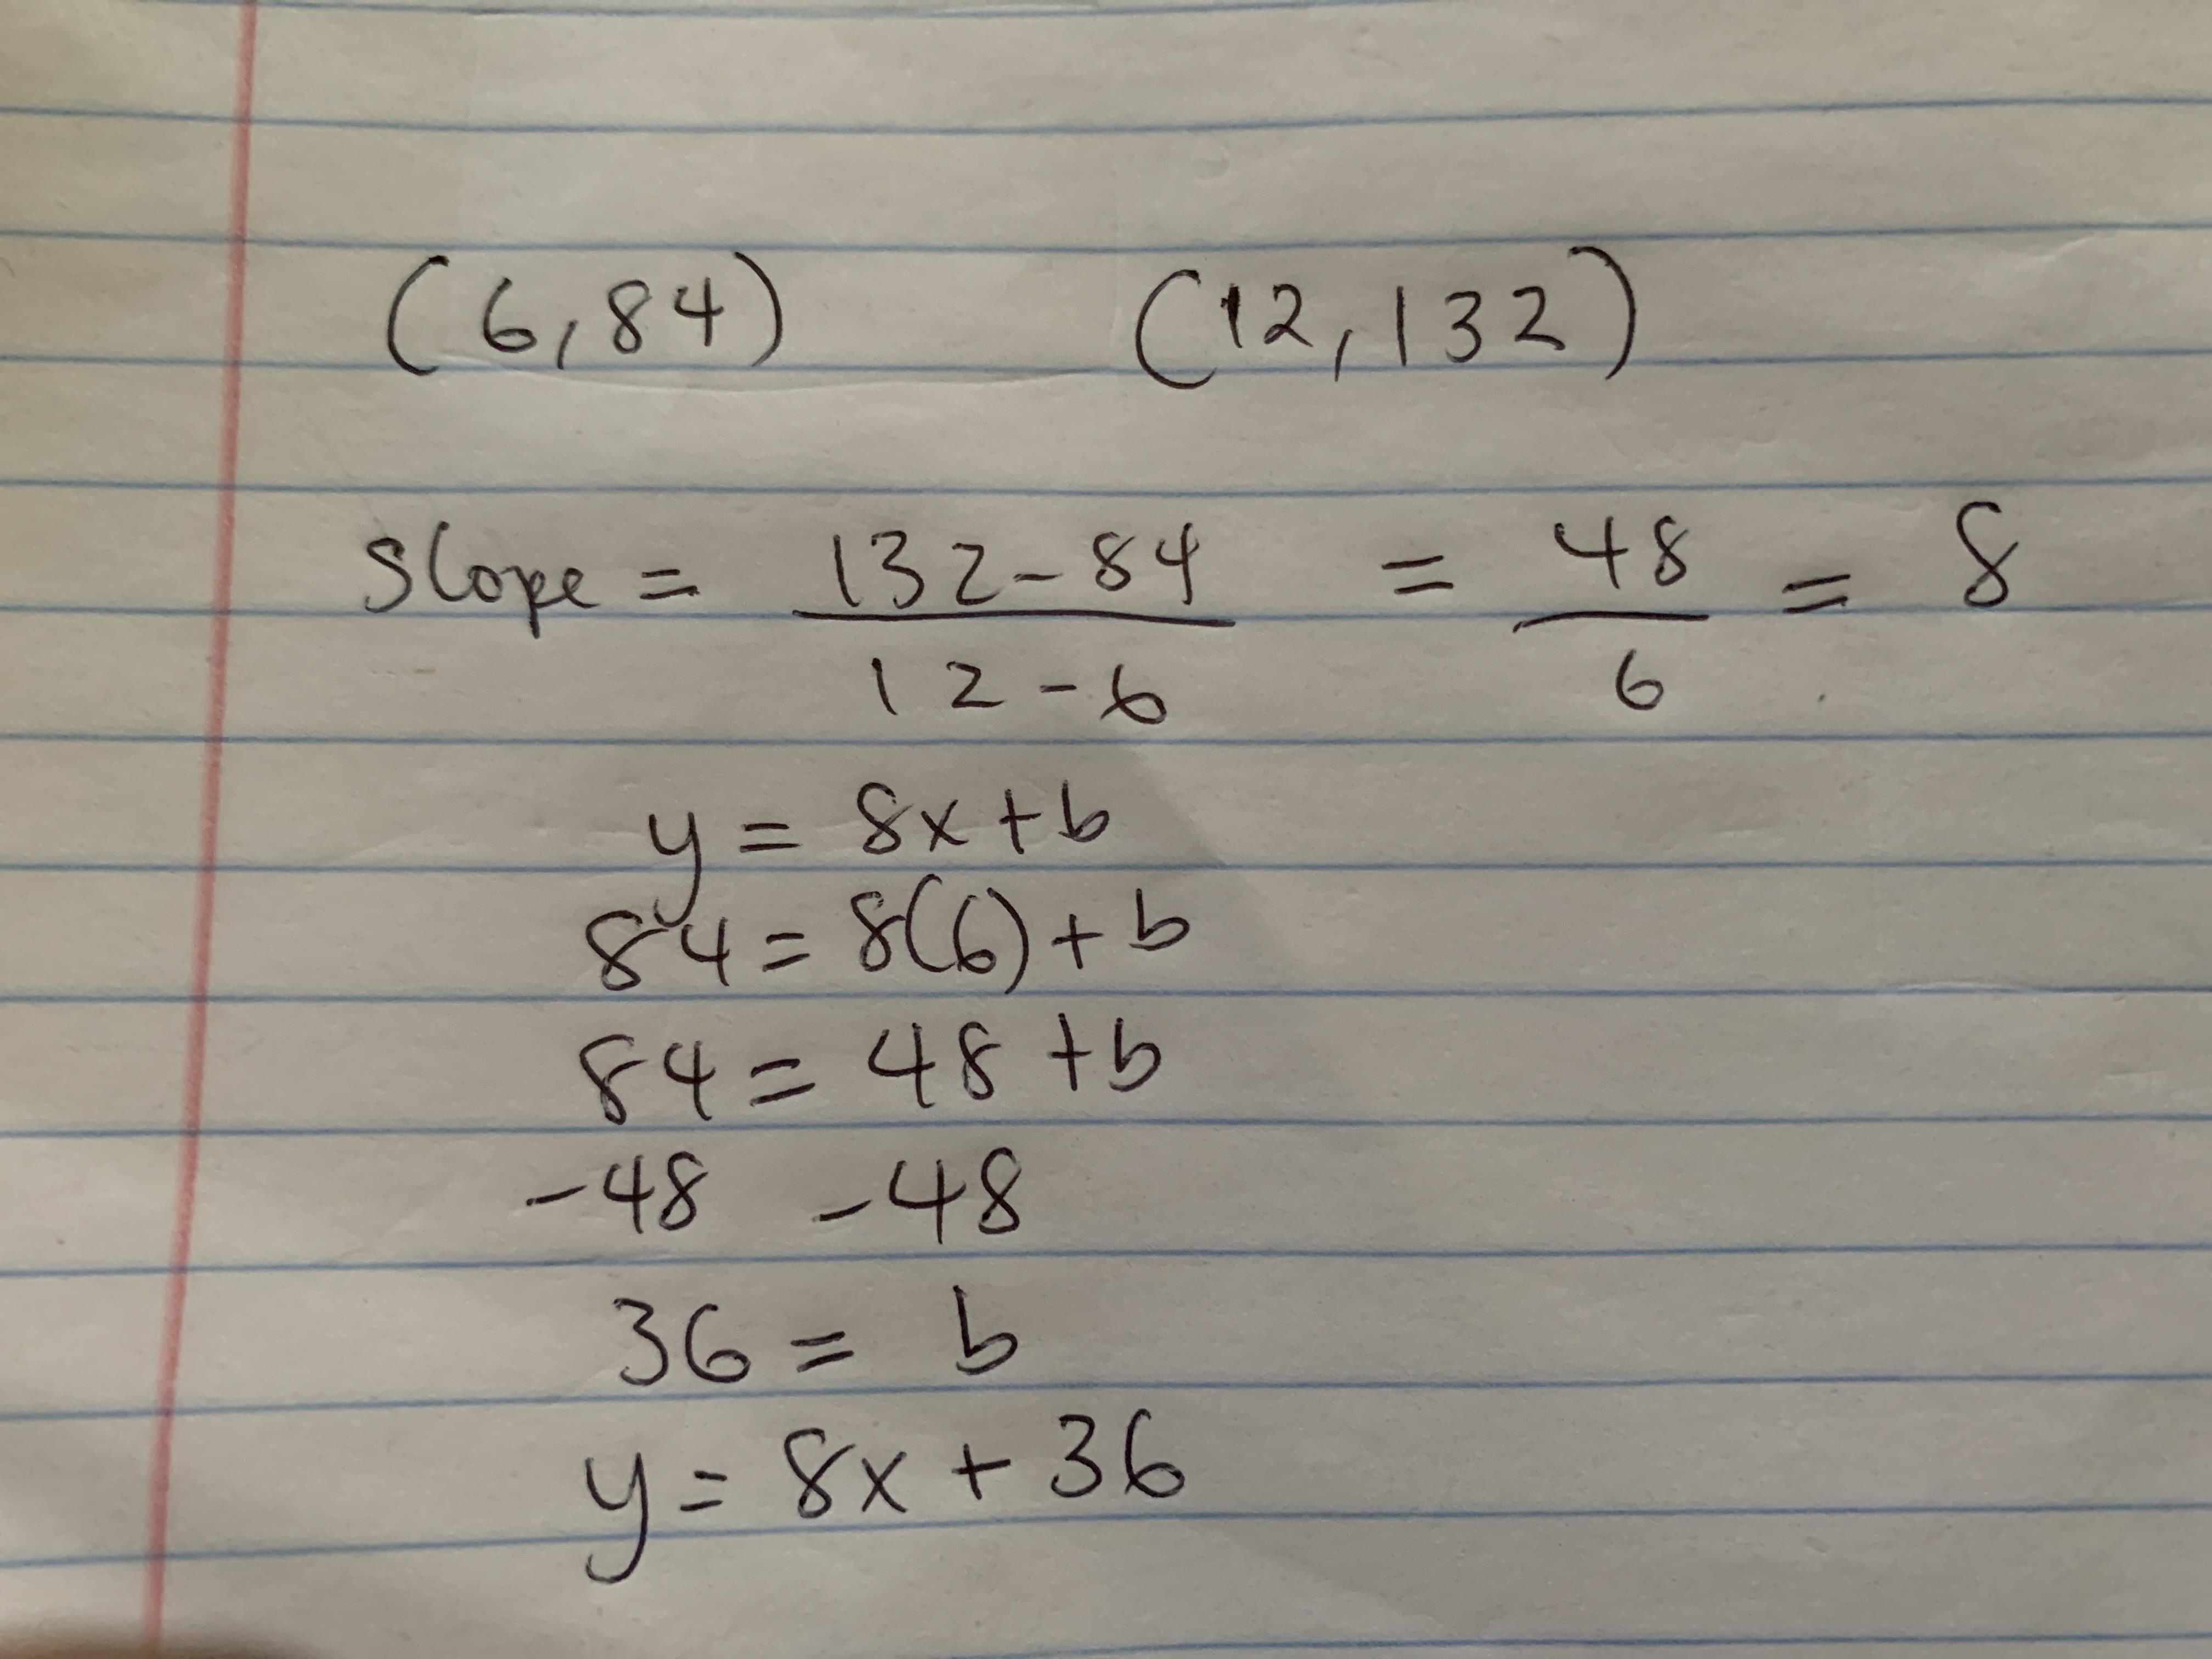 (6,84) (12,132)
Slope = 132-84 / 12-6 = 48 / 6 = 8
y = 8x+b
84 = 8(6)+b
84 = 48+b
-48 -48
36 = b
y = 8x+36